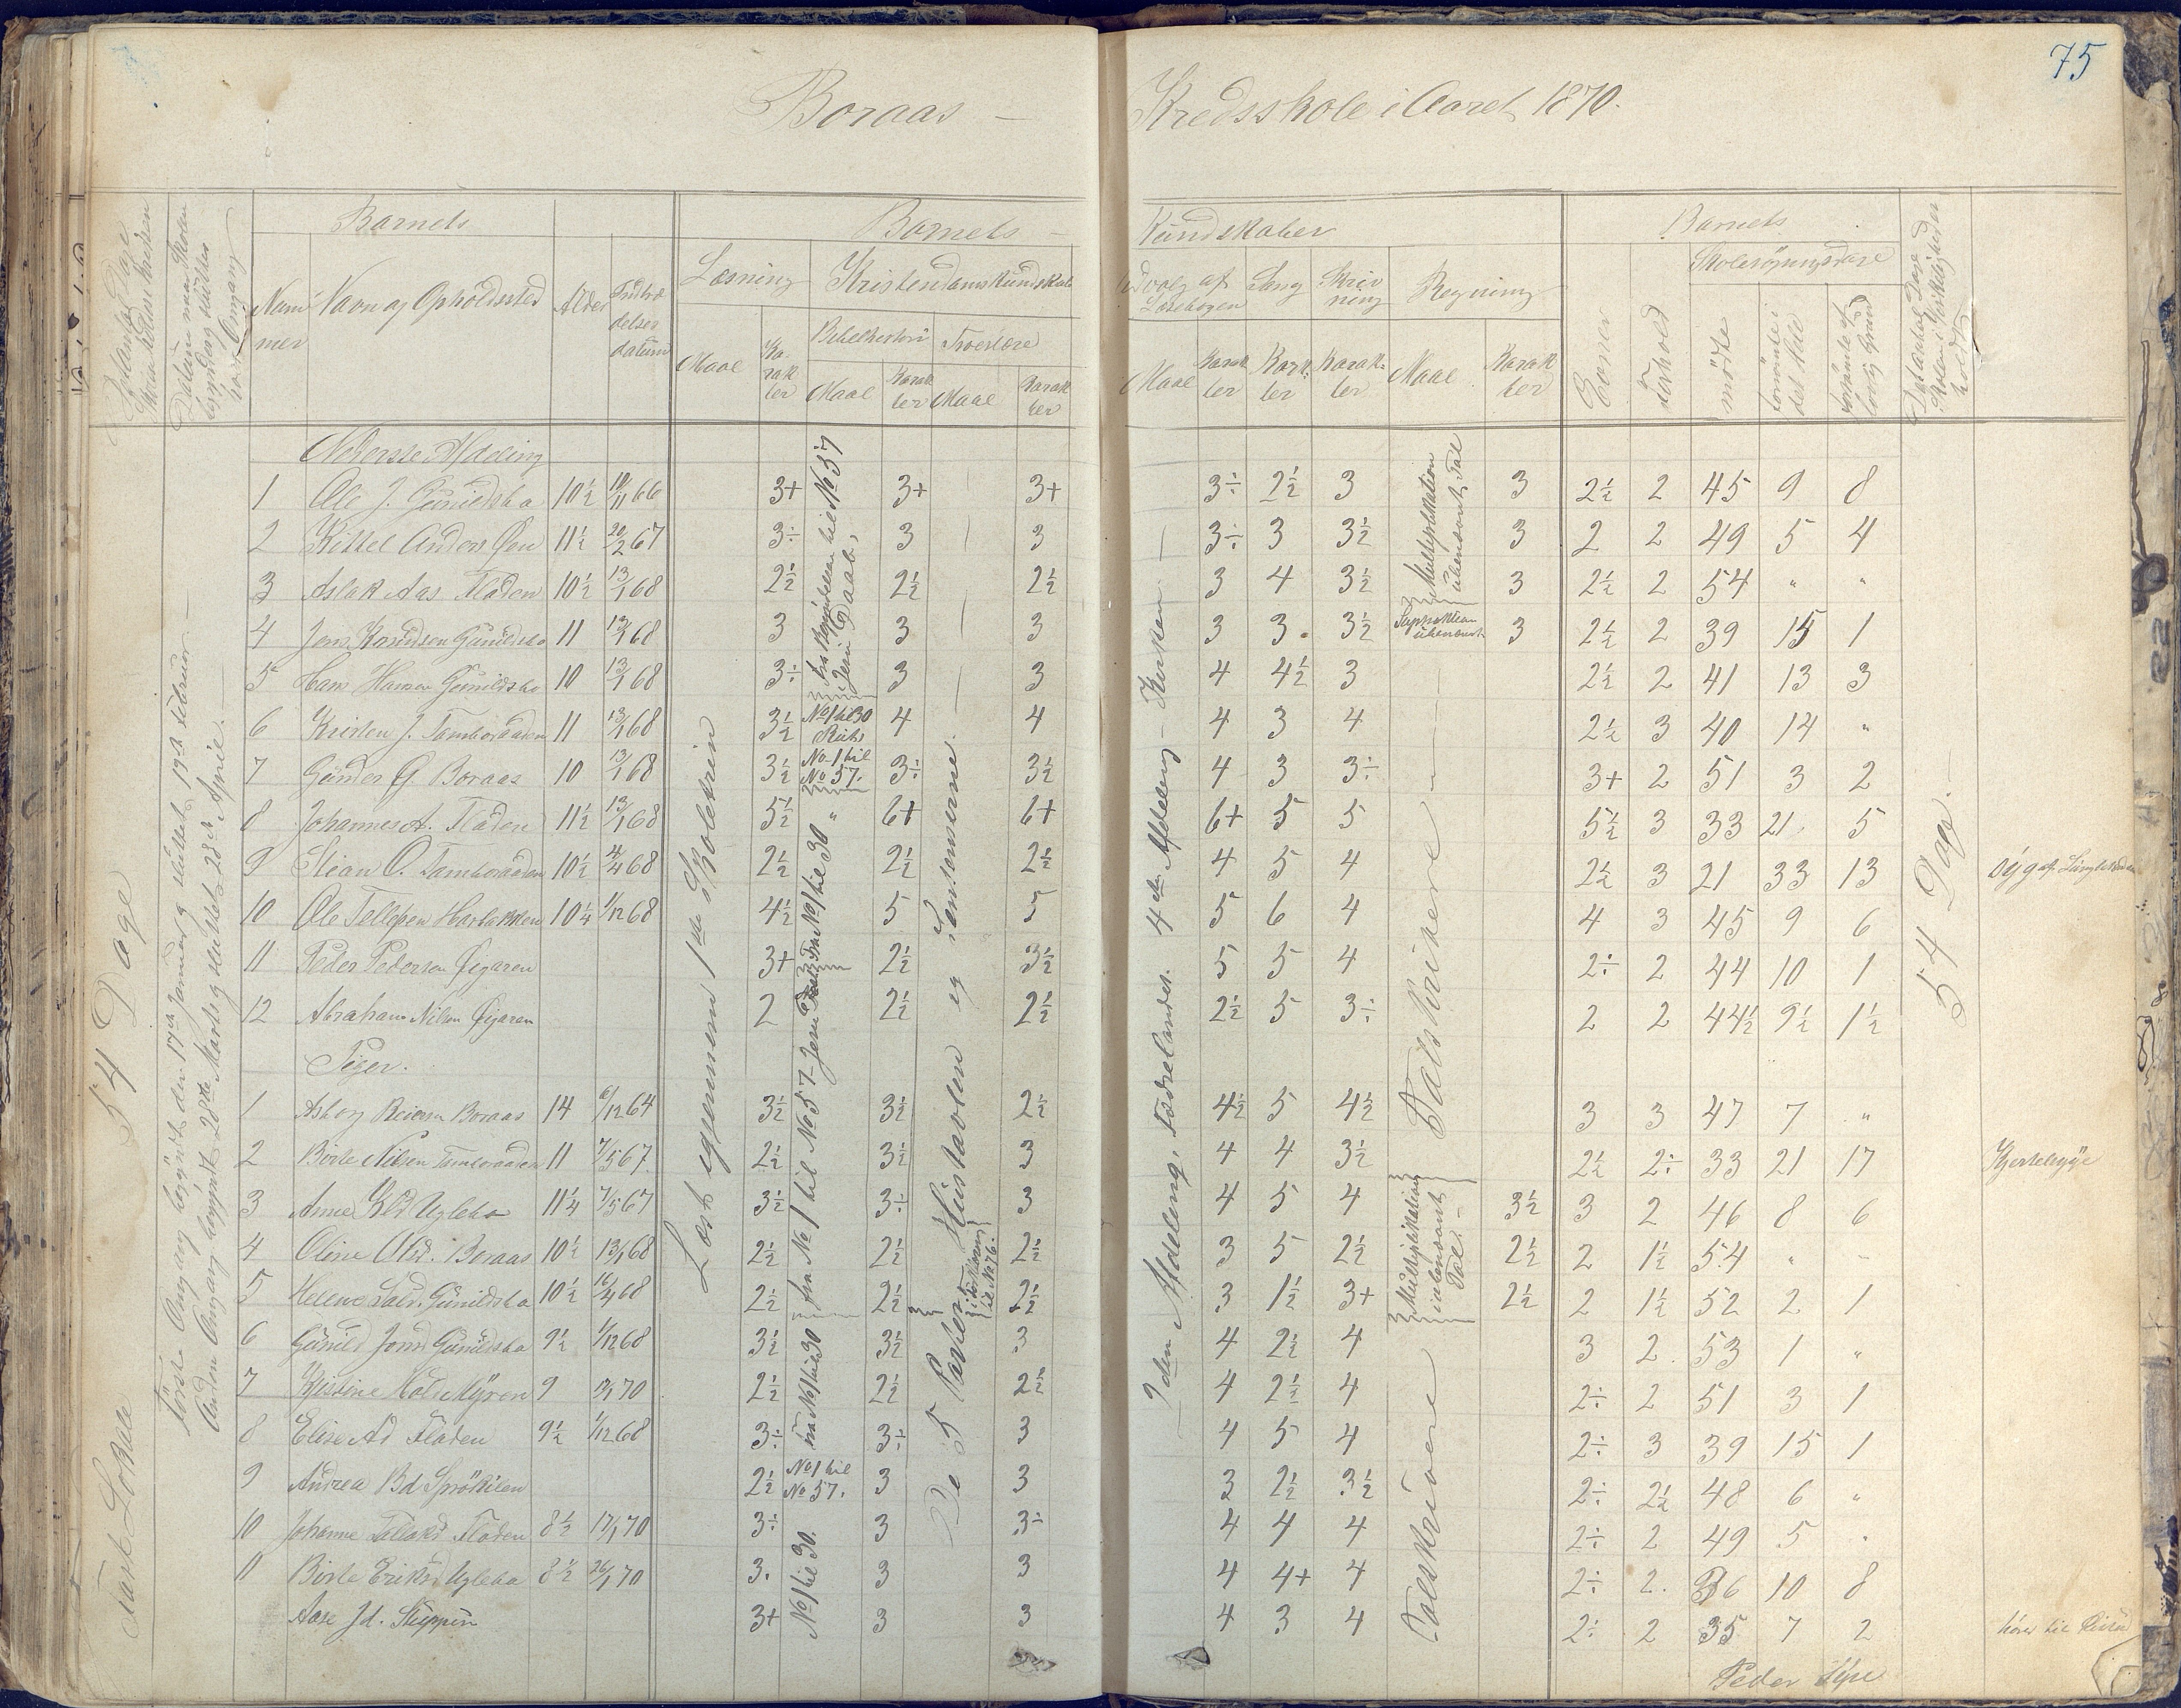 75
Boraas – Kredsskole i Aaret 1870.
Barnets
Barnets Kundskaber
Barnets
Nummer Navn og Opholdssted Alder Indtrædelses datum
Læsning Kristendomskundskab
Udvalg af Læsebogen Sang Skrivning Regning
Evner Forhold Skolesøgningsdage
mødte forsømte i det Hele forsømte af lovlig Grund
Bibelhistorie Troeslære
Maal Karakter Maal Karakter Maal Karakter
Maal Karakter Karakter Karakter Maal Karakter
fast Lokale 54 Dage
Første Omgang begyndt den 17de Januar og sluttet 19de Februar –
Anden Omgang begyndt 28de Marts og sluttet 28de April. –
Læst igjennem 1ste Skoletrin
De 5 Parter og Hustavlen Sentenserne.
i Forklaring til No 76.
2den Afdeling, Fædrelandet. 4de Afdeling – Kirken –
54 Dage. –
Nederste Afdeling
1 Ole J. Gunildsbo 10½ 10/11 66 3+ 3+ 3+ 3÷ 2½ 3 3 2½ 2 45 9 8
2 Kittel Anders Øen 11½ 20/2 67 3÷ 3 3 3÷ 3 3½ 3 2 2 49 5 4
3 Aslak Aas Fladen 10½ 13/1 68 2½ 2½ 2½ 3 4 3½ 3 2½ 2 54 " "
4 Jens Knudsen Gunildsbo 11 13/1 68 3 3 3 3 3 3½ 3 2½ 2 39 15 1
5 Hans Hansen Gunildsbo 10 13/1 68 3÷ 3 3 4 4½ 3 2½ 2 41 13 3
6 Kristen J. Tamboraaden 11 13/1 68 3½ No 1 til 30 4 4 4 3 4 2½ 3 40 14 "
7 Gunder G. Boraas 10 13/1 68 3½ No 1 til No 57. 3÷ 3½ 4 3 3÷ 3+ 2 51 3 2
8 Johannes A. Fladen 11½ 13/1 68 5½ " 6+ 6+ 6+ 5 5 5½ 3 33 21 5
9 Stian O. Tamboraaden 10½ 4/4 68 2½ 2½ 2½ 4 5 4 2½ 3 21 33 13
10 Ole Tellefsen 10¼ 1/12 68 4½ 5 5 5 6 4 4 3 45 9 6
11 Peder Pedersen Øigaren 3+ 2½ 3½ 5 5 4 2÷ 2 44 10 1
12 Abraham Nilsen Øigaren 2 2½ 2½ 2½ 5 3÷ 2 2 44½ 9½ 1½
Multiplikation ubenævnte Tal
ubenævnt
Talskrivere
Piger.
1 Asborg Reiersen Boraas 14 6/12 64 3½ 3½ 2½ 4½ 5 4½ 3 3 47 7 "
2 Birte Nilsen Tamboraaden 11 7/5 67. 2½ 3½ 3 4 4 3½ 2½ 2÷ 33 21 17 Kjertelsyge
3 Anne Uglebo 11¼ 7/5 67 3½ 3÷ 3 4 5 4 3½ 3 2 46 8 6
4 Oline Olsd. Boraas 10½ 13/1 68 2½ 2½ 2½ 3 5 2½ 2½ 2 1½ 54 " "
5 Helene Gunildsbo 10½ 16/4 68 2½ 2½ 2½ 3 1½ 3+ 2½ 2 1½ 52 2 1
6 Gunild Jensd Gunildsbo 9½ 1/12 68 3½ 3½ 3 4 2½ 4 3 2. 53 1 "
7 Kistine Myren 9 17/1 70 2½ 2½ 2½ 4 2½ 4 2÷ 2 51 3 1
8 Elise Ad Fladen 9½ 1/12 68 3÷ 3÷ 3 4 5 4 2÷ 3 39 15 1
9 Andrea Bd Sprøkilen 2½ No 1 til No 57. 3 3 3 2½ 3½ 2÷ 2½ 48 6 "
10 Johanne Fladen 8½ 17/1 70 3÷ 3 3÷ 4 4 4 2÷ 2 49 5 "
11 Birte Eriksd Ugleba 8½ 26/1 70 3. 3 3 4 4+ 4 2÷ 2. 36 10 8
Aase Jd. Skuppen 3+ 3 3 4 3 4 2÷ 2 35 7 2
fra No 1 til No 57
fra No 1 til 30
No 1 til 30.
Multiplikation i ubenævnte Tal. –
Talskrivere
Peder